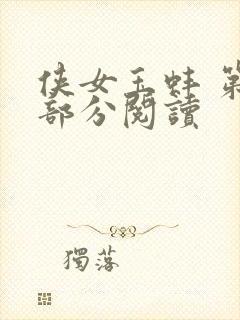 侠女玉蚌 第
部分閱讀
獨落